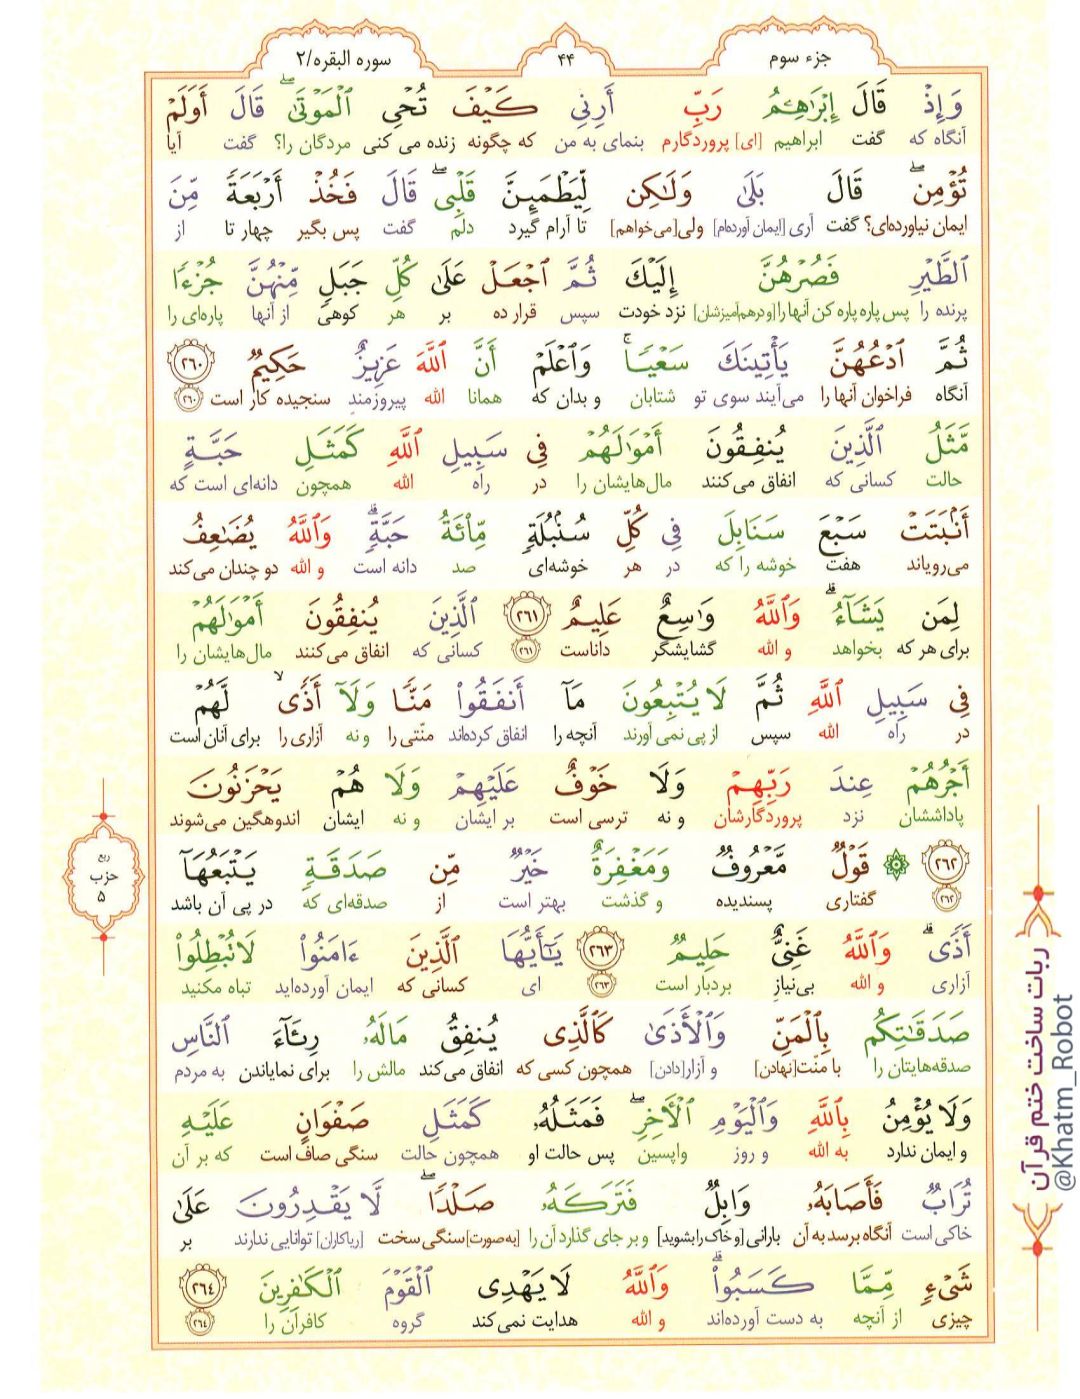 جزء سوم
۴۴
سوره البقره/۲
وَإِذْ قَالَ إِبْرَٰهِـۧمُ رَبِّ أَرِنِى كَيْفَ تُحْىِ ٱلْمَوْتَىٰۖ قَالَ أَوَلَمْ
آنگاه که گفت ابراهیم [ای] پروردگارم بنمای به من که چگونه زنده می کنی مردگان را؟ گفت آیا
تُؤْمِنۖ قَالَ بَلَىٰ وَلَـٰكِن لِّيَطْمَئِنَّ قَلْبِىۖ قَالَ فَخُذْ أَرْبَعَةً مِّنَ
ایمان نیاورده‌ای؟ گفت آری [ایمان آورده‌ام] ولی[می‌خواهم] تا آرام گیرد دلم گفت پس بگیر چهار تا از
ٱلطَّيْرِ فَصُرْهُنَّ إِلَيْكَ ثُمَّ ٱجْعَلْ عَلَىٰ كُلِّ جَبَلٍ مِّنْهُنَّ جُزْءًا
پرنده را پس پاره پاره کن آنها را[و درهم‌آمیزشان] نزد خودت سپس قرار ده بر هر کوهی از آنها پاره‌ای را
ثُمَّ ٱدْعُهُنَّ يَأْتِينَكَ سَعْيًاۚ وَٱعْلَمْ أَنَّ ٱللَّهَ عَزِيزٌ حَكِيمٌ ۲۶۰
آنگاه فراخوان آنها را می‌آیند سوی تو شتابان و بدان که همانا الله پیروزمند سنجیده کار است ۲۶۰
مَّثَلُ ٱلَّذِينَ يُنفِقُونَ أَمْوَٰلَهُمْ فِى سَبِيلِ ٱللَّهِ كَمَثَلِ حَبَّةٍ
حالت کسانی که انفاق می‌کنند مال‌هایشان را در راه الله همچون دانه‌ای است که
أَنۢبَتَتْ سَبْعَ سَنَابِلَ فِى كُلِّ سُنۢبُلَةٍ مِّا۟ئَةُ حَبَّةٍۗ وَٱللَّهُ يُضَـٰعِفُ
می‌رویاند هفت خوشه را که در هر خوشه‌ای صد دانه است و الله دو چندان می‌کند
لِمَن يَشَآءُۗ وَٱللَّهُ وَٰسِعٌ عَلِيمٌ ۲۶۱ ٱلَّذِينَ يُنفِقُونَ أَمْوَٰلَهُمْ
برای هر که بخواهد و الله گشایشگر داناست ۲۶۱ کسانی که انفاق می‌کنند مال‌هایشان را
فِى سَبِيلِ ٱللَّهِ ثُمَّ لَا يُتْبِعُونَ مَآ أَنفَقُوا۟ مَنًّا وَلَآ أَذًىۙ لَّهُمْ
در راه الله سپس از پی نمی آورند آنچه را انفاق کرده‌اند منّتی را و نه آزاری را برای آنان است
أَجْرُهُمْ عِندَ رَبِّهِمْ وَلَا خَوْفٌ عَلَيْهِمْ وَلَا هُمْ يَحْزَنُونَ
پاداششان نزد پروردگارشان و نه ترسی است بر ایشان و نه ایشان اندوهگین می‌شوند
۲۶۲ قَوْلٌ مَّعْرُوفٌ وَمَغْفِرَةٌ خَيْرٌ مِّن صَدَقَةٍ يَتْبَعُهَآ
۲۶۲ گفتاری پسندیده و گذشت بهتر است از صدقه‌ای که در پی آن باشد
أَذًىۗ وَٱللَّهُ غَنِىٌّ حَلِيمٌ ۲۶۳ يَـٰٓأَيُّهَا ٱلَّذِينَ ءَامَنُوا۟ لَا تُبْطِلُوا۟
آزاری و الله بی‌نیاز بردبار است ۲۶۳ ای کسانی که ایمان آورده‌اید تباه مکنید
صَدَقَـٰتِكُم بِٱلْمَنِّ وَٱلْأَذَىٰ كَٱلَّذِى يُنفِقُ مَالَهُۥ رِئَآءَ ٱلنَّاسِ
صدقه‌هایتان را با منّت[نهادن] و آزار[دادن] همچون کسی که انفاق می‌کند مالش را برای نمایاندن به مردم
وَلَا يُؤْمِنُ بِٱللَّهِ وَٱلْيَوْمِ ٱلْـَٔاخِرِۖ فَمَثَلُهُۥ كَمَثَلِ صَفْوَانٍ عَلَيْهِ
و ایمان ندارد به الله و روز واپسین پس حالت او همچون حالت سنگی صاف است که بر آن
تُرَابٌ فَأَصَابَهُۥ وَابِلٌ فَتَرَكَهُۥ صَلْدًاۖ لَّا يَقْدِرُونَ عَلَىٰ
خاکی است آنگاه برسد به آن بارانی [و خاک را بشوید] و بر جای گذارد آن را [به‌صورت] سنگی سخت [ریاکاران] توانایی ندارند بر
شَىْءٍ مِّمَّا كَسَبُوا۟ۗ وَٱللَّهُ لَا يَهْدِى ٱلْقَوْمَ ٱلْكَـٰفِرِينَ ۲۶۴
چیزی از آنچه به دست آورده‌اند و الله هدایت نمی‌کند گروه کافران را ۲۶۴
ربع
حزب
۵
ربات ساخت ختم قرآن
@Khatm_Robot